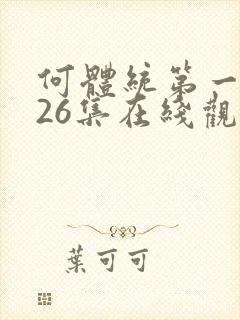 何體統第一
26集在线觀
葉可可